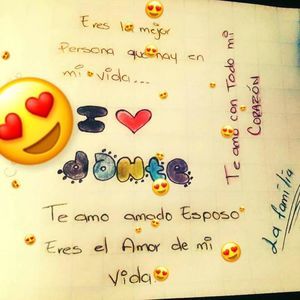 Eres la mejor
Persona que hay en
mi vida...
I ❤
Te amo amado Esposo
Eres el Amor de mi
Vida
Te amo con Todo mi
CORAZÓN
La familia